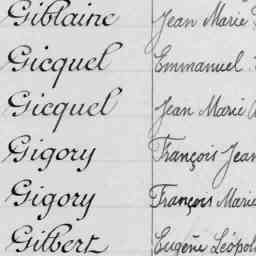 Giblaine Jean Marie
Gicquel Emmanuel
Gicquel Jean Marie
Gigory François Jean
Gigory François Marie
Gilbert Eugène Léopol